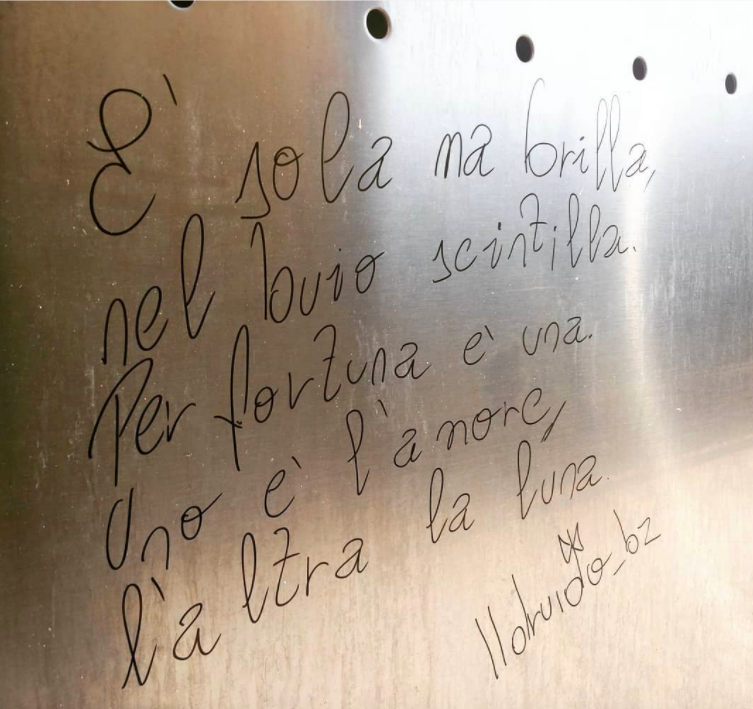 E' sola ma brilla,
nel buio scintilla.
Per fortuna e' una.
Uno e' l'amore,
l'altra la luna.
Ildruido_bz